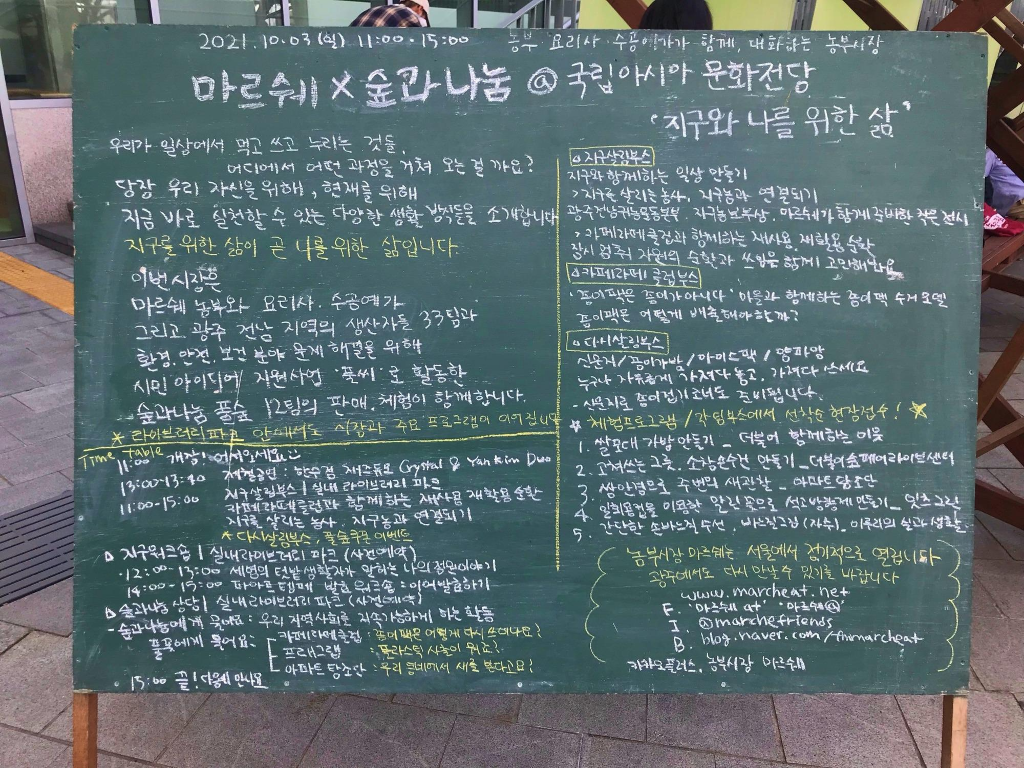 2021.10.03(일) 11:00-15:00 농부 요리사 수공예가가 함께, 대화하는 농부시장
마르쉐 x 숲과나눔 @ 국립아시아 문화전당
'지구와 나를 위한 삶'
우리가 일상에서 먹고 쓰고 누리는 것들,
어디에서 어떤 과정을 거쳐 오는 걸까요?
당장 우리 자신을 위해, 현재를 위해
지금 바로 실천할 수 있는 다양한 생활 방식들을 소개합니다
지구를 위한 삶이 곧 나를 위한 삶입니다.
이번 시장은
마르쉐 농부와 요리사, 수공예가
그리고 광주 전남 지역의 생산자들 33팀과
환경, 안전, 보건 분야 문제 해결을 위해
시민 아이디어 지원사업 '풀씨'로 활동한
숲과나눔 풀숲 12팀의 판매, 체험이 함께합니다.
★ 라이브러리파크 안에서도 시장과 주요 프로그램이 이어집니다
Time table
11:00 개장! 어서오세요
13:00-13:40 체험공연: 한수정 재즈듀오 Crystal & Yankim Duo
11:00-15:00 지구살림부스 | 실내 라이브러리 파크
카페라떼클럽과 함께하는 재사용 재활용 순환
지구를 살리는 농사, 지구농과 연결되기
* 다시살림부스,
지구워크숍 | 실내라이브러리 파크 (사전예약)
12:00-13:00 세평의 텃밭 생활자가 말하는 나의
14:00-15:00 워크숍: 이어발효하기
숲과나눔 상담 | 실내라이브러리 파크 (사전예약)
- 숲과나눔에게 묻어요: 우리 지역사회를 지속가능하게 하는 활동
풀목에게 묻어요: 카페라떼클럽: 종이팩은 어떻게 다시 쓰이나요?
프래그랩: 플라스틱 사출이 뭐죠?
아파트 탐조단: 우리 동네에서 새를 본다고요?
15:00 끝! 다음에 만나요
o 지구살림부스
지구와 함께하는 일상 만들기
, 지구를 살리는 농사, 지구농과 연결되기
마르쉐가 함께 준비한 작은 전시
, 카페라떼클럽과 함께하는 재사용, 재활용 순환
잠시 멈추고 자원의 순환과 쓰임을 함께 고민해봐요
o 카페라떼 클럽부스
'종이팩은 종이가 아니다' 마을과 함께하는 종이팩 수거 모델
종이팩은 어떻게 배출해야 할까?
o 다시살림부스
신문지/종이가방/아이스팩/양파망
누구나 자유롭게 가져다 놓고, 가져다 쓰세요
- 신문지로 종이접기 코너도 준비됩니다.
★ 체험프로그램 / 각 팀 부스에서 선착순 현장접수! ★
1. 쌀포대 가방 만들기 _ 더불어 함께하는 이웃
2. 고쳐쓰는 그릇, 소창손수건 만들기 _ 더불어숲페어라이브센터
3. 쌍안경으로 주변의 새관찰 _ 아파트탐조단
4. 일회용컵을 이용한 만들기 _ 잇츠그린
5. 간단한 소바느질 수선,
농부시장 마르쉐는 서울에서 정기적으로 열립니다
광주에서도 다시 만날 수 있기를 바랍니다
www.marcheat.net
F. '마르쉐 at' '마르쉐@'
I. @marchefriends
B. blog.naver.com/fmmarcheat
카카오플러스, 농부시장 마르쉐